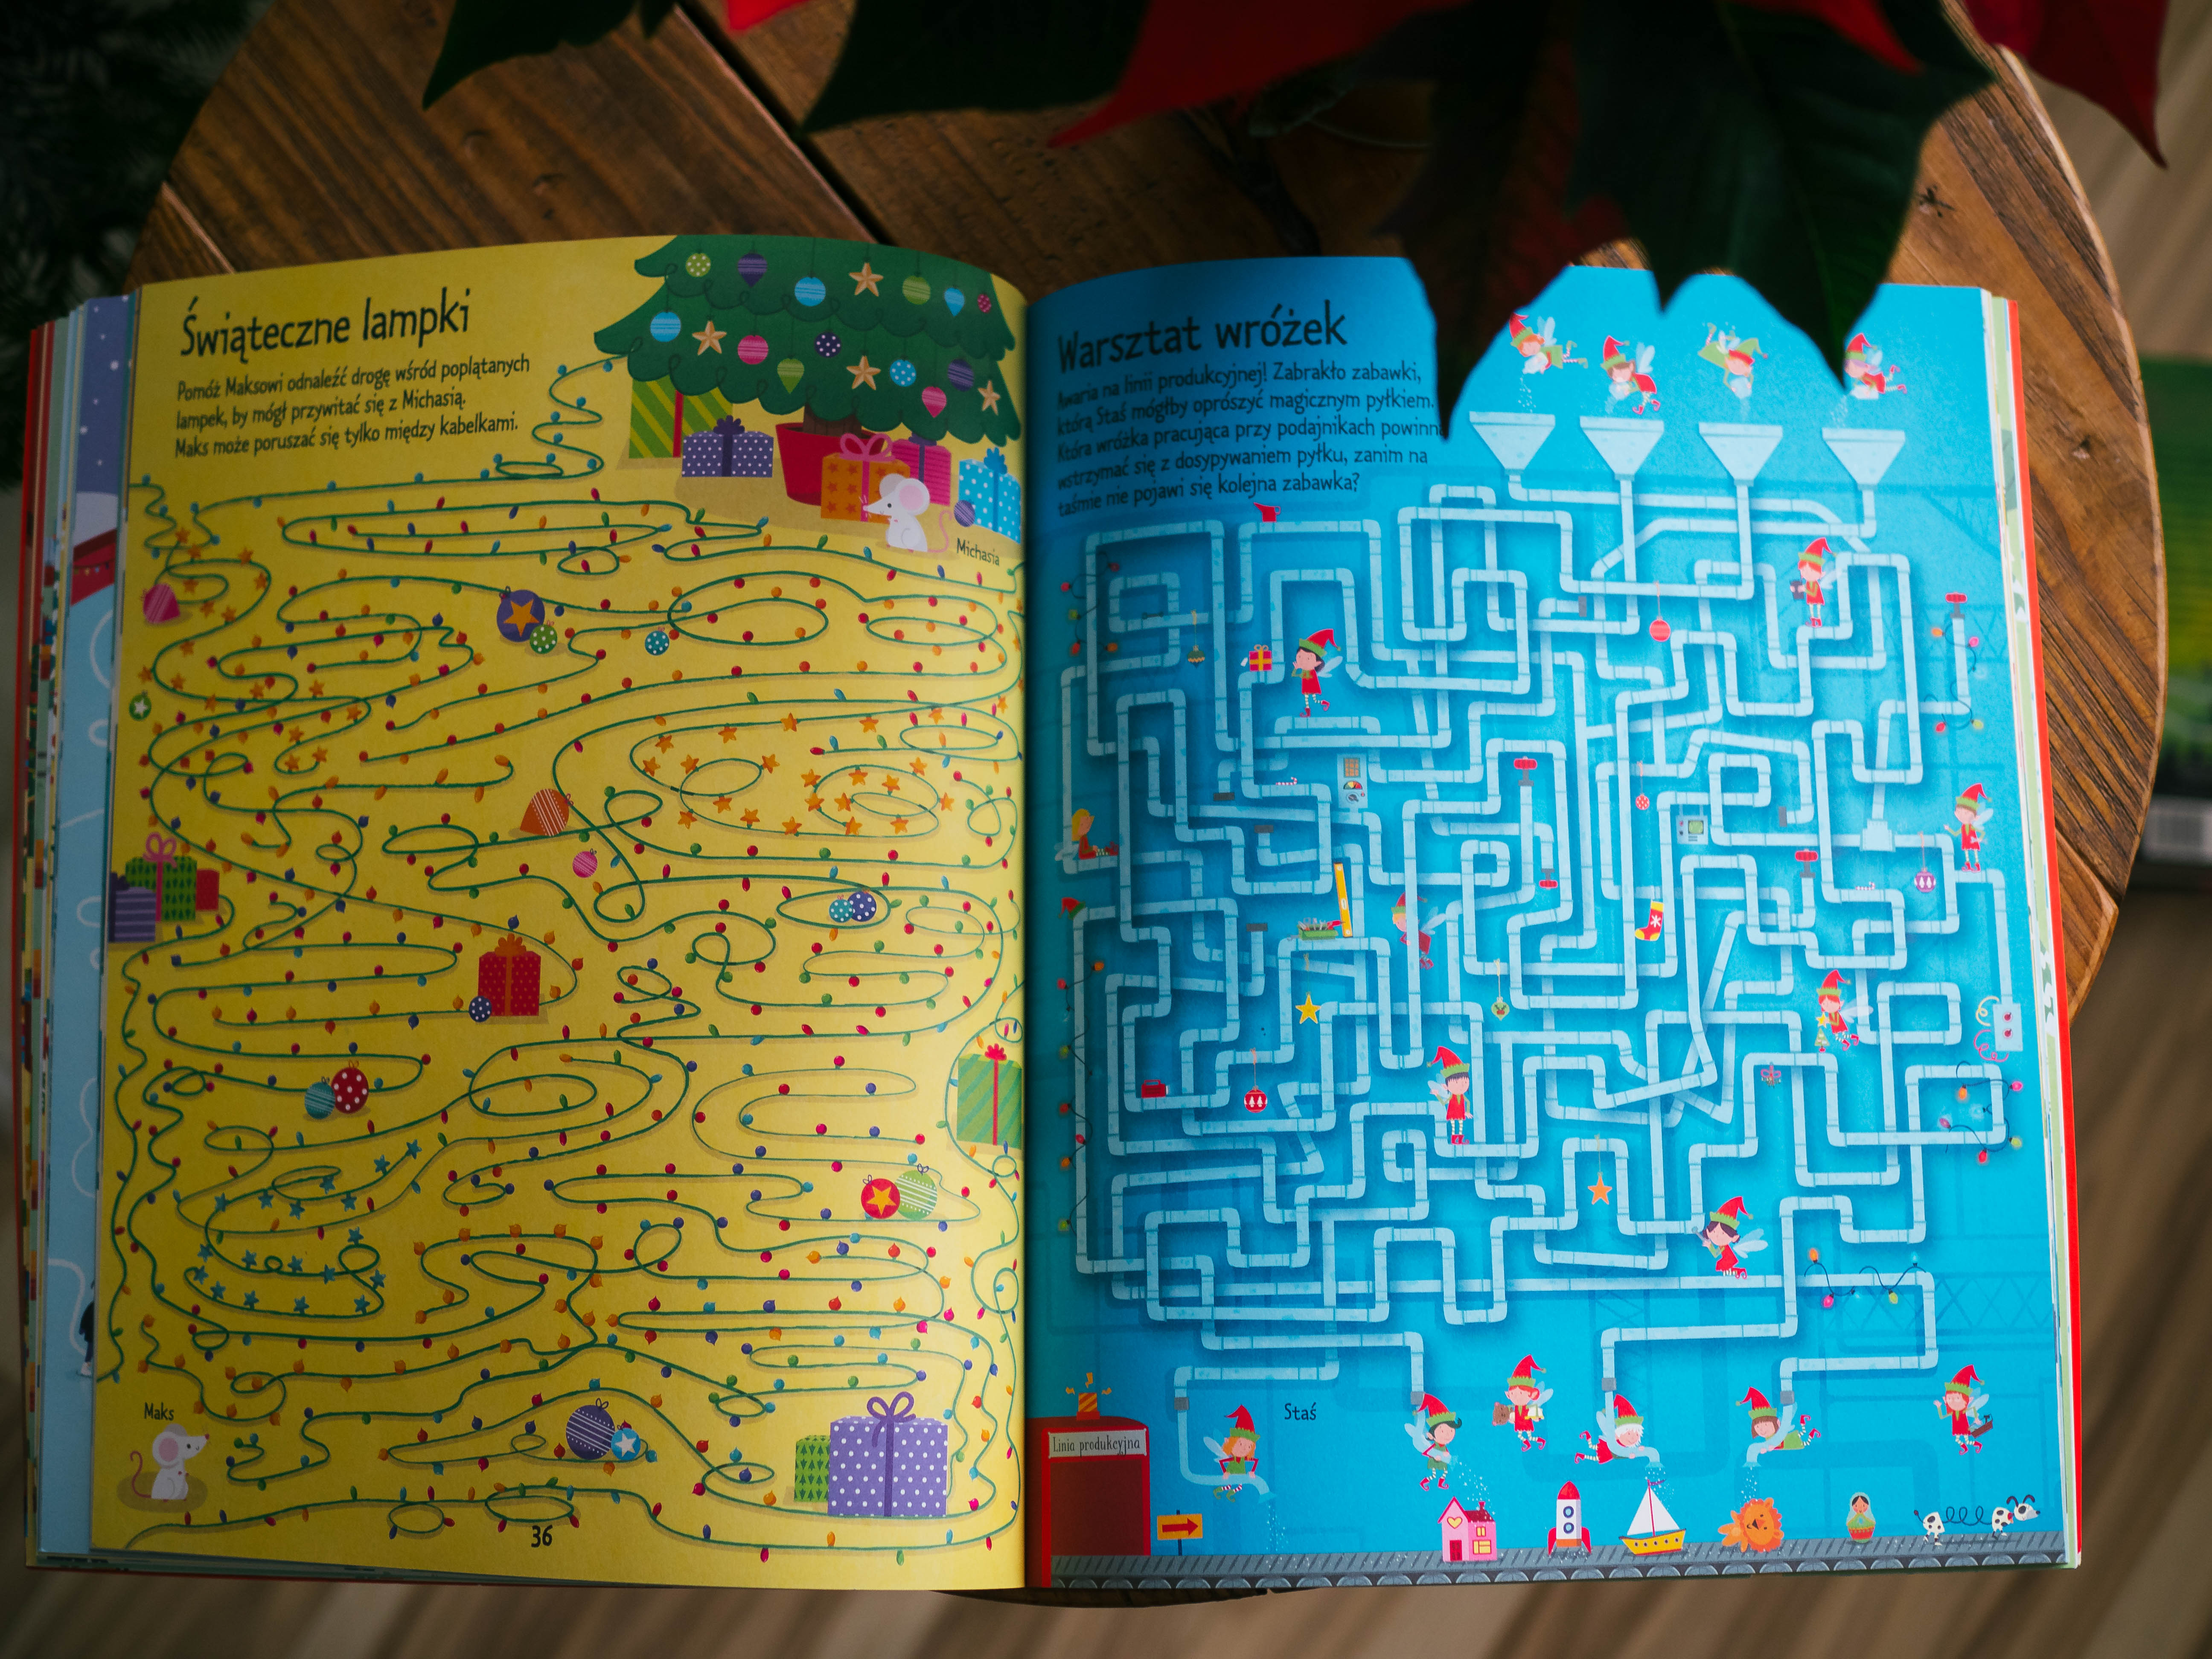 Świąteczne lampki
Pomóż Maksowi odnaleźć drogę wśród poplątanych
lampek, by mógł przywitać się z Michasią.
Maks może poruszać się tylko między kabelkami.
Michasia
Maks
36
Warsztat wróżek
Awaria na linii produkcyjnej! Zabrakło zabawki,
którą Staś mógłby oprószyć magicznym pyłkiem.
Która wróżka pracująca przy podajnikach powinn
wstrzymać się z dosypywaniem pyłku, zanim na
taśmie nie pojawi się kolejna zabawka?
Staś
Linia produkcyjna